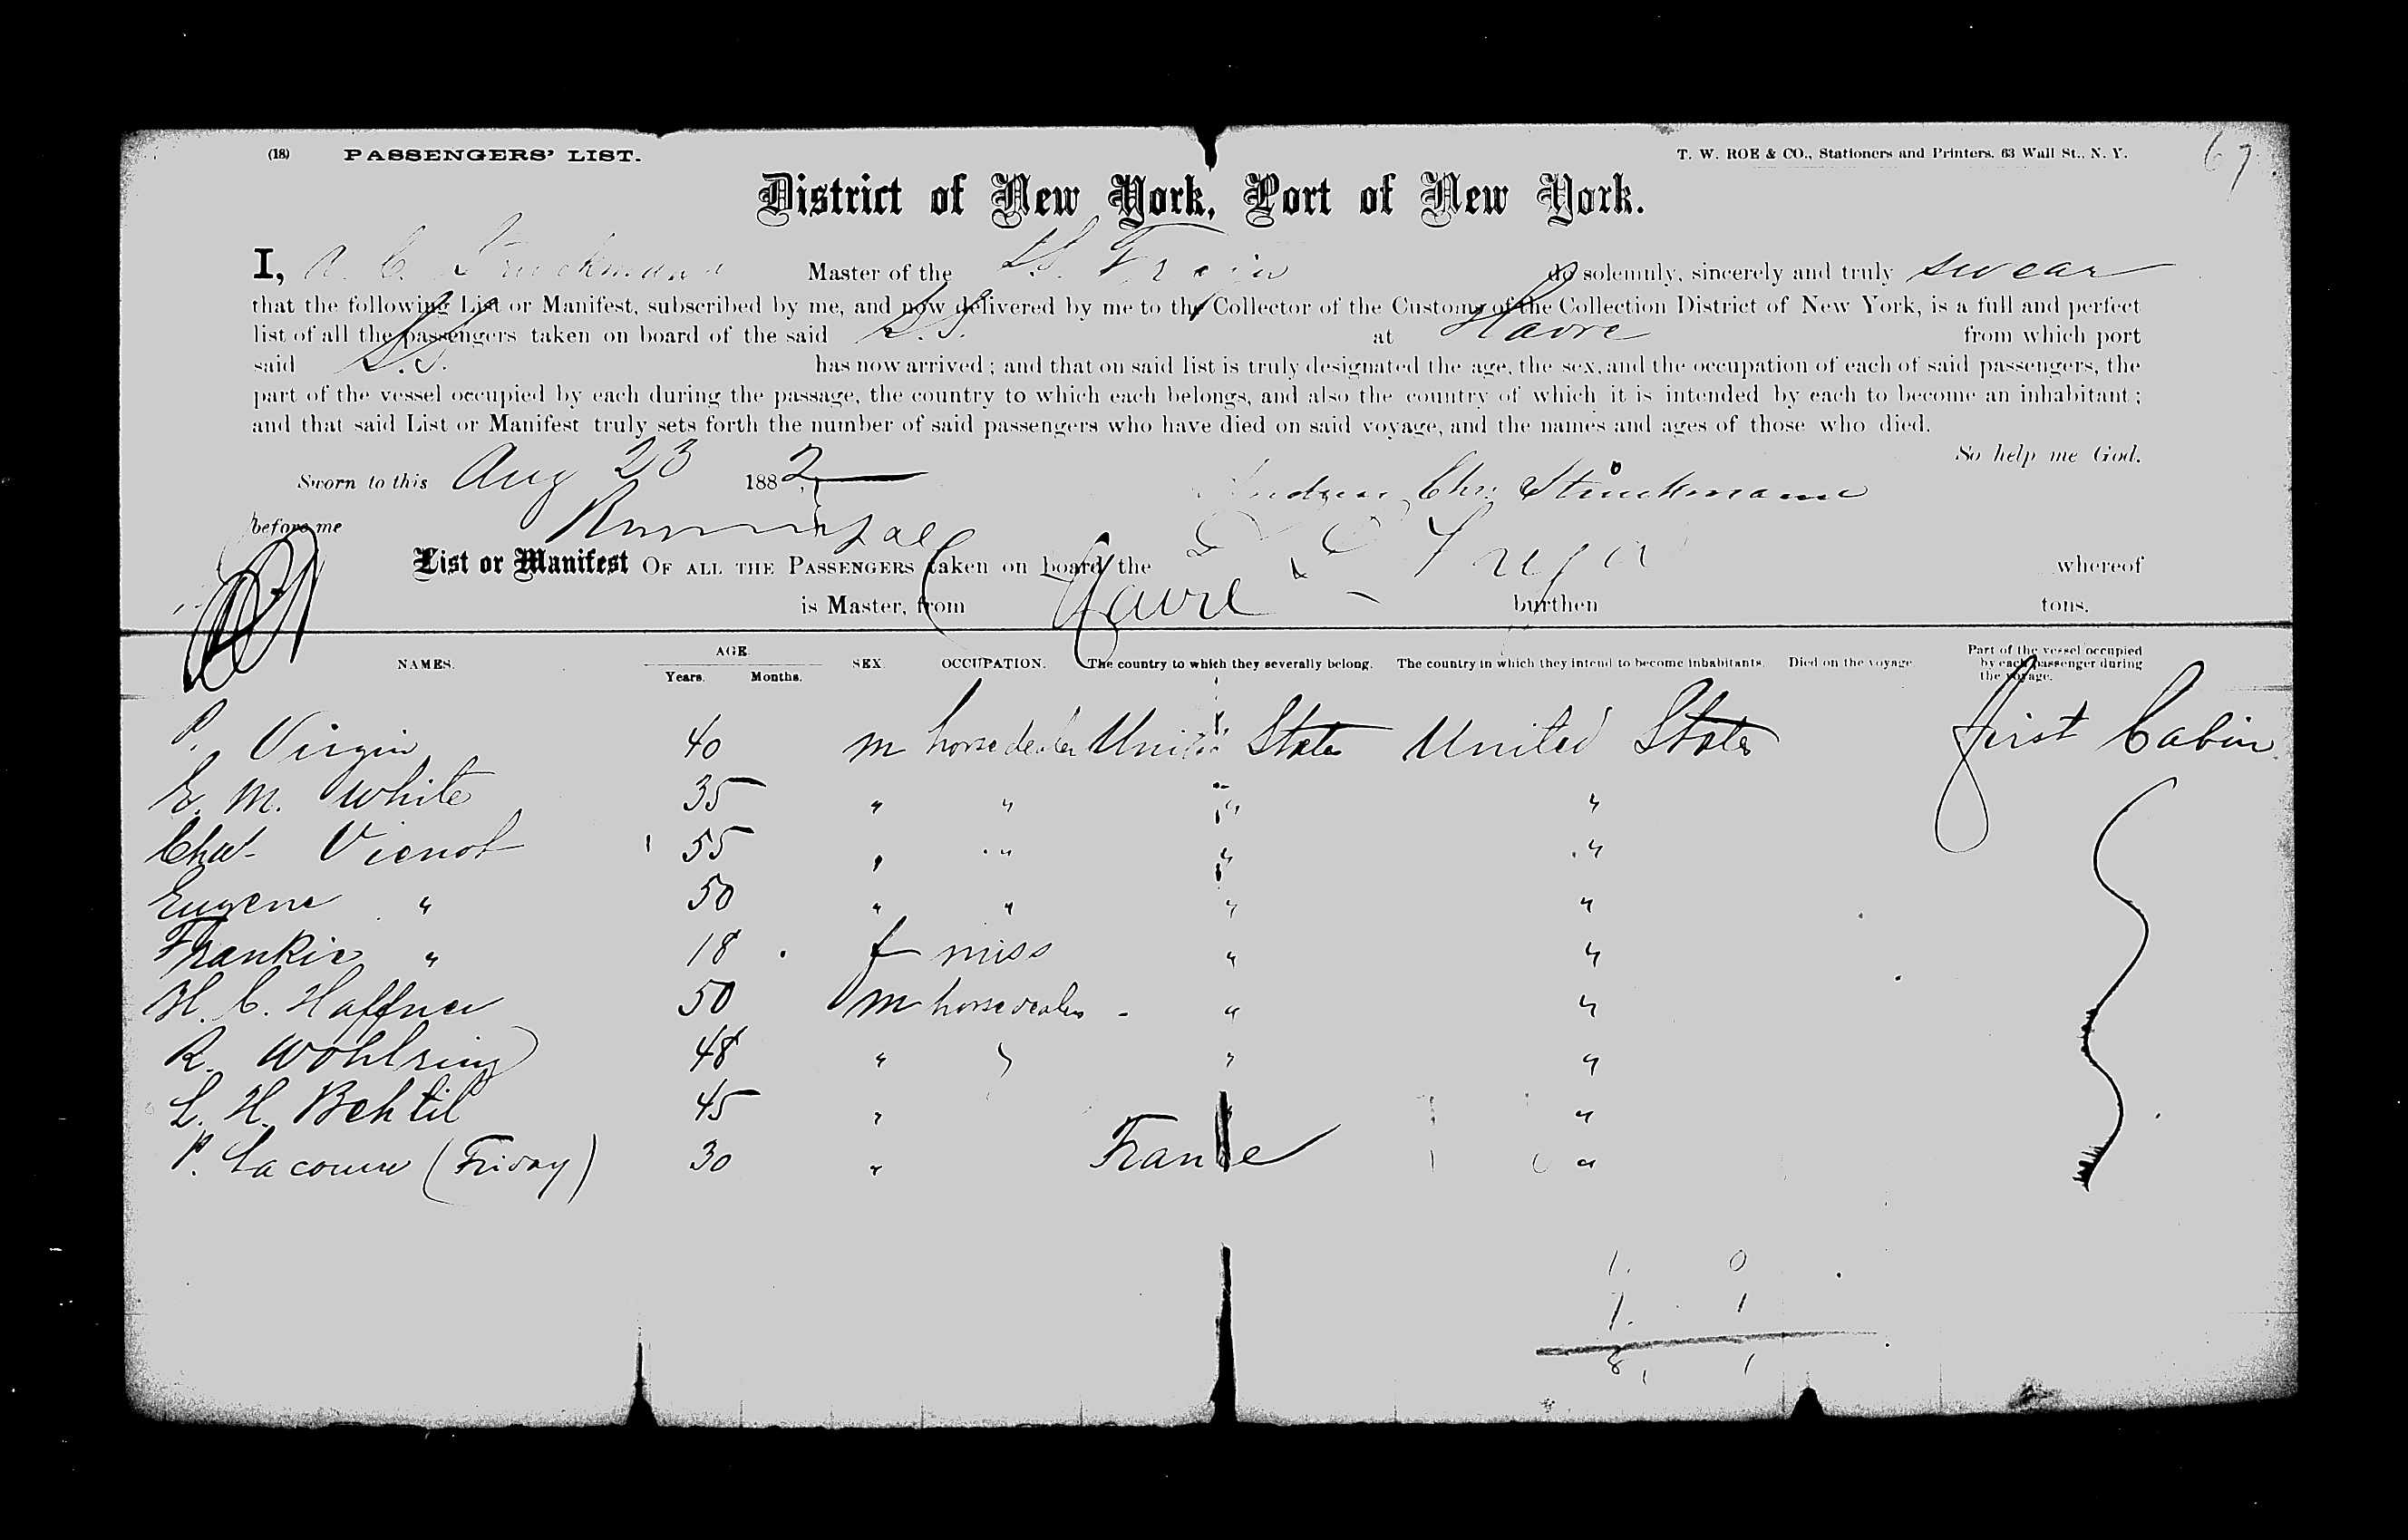 (18) PASSENGERS' LIST. T. W. ROE & CO., Stationers and Printers, 63 Wall St., N. Y. 67
District of New York, Port of New York.
I, A. C. Struckmann Master of the S.S. do solemnly, sincerely and truly swear
that the following List or Manifest, subscribed by me, and now delivered by me to the Collector of the Customs of the Collection District of New York, is a full and perfect
list of all the passengers taken on board of the said S.S. at Havre from which port
said S.S. has now arrived; and that on said list is truly designated the age, the sex, and the occupation of each of said passengers, the
part of the vessel occupied by each during the passage, the country to which each belongs, and also the country of which it is intended by each to become an inhabitant;
and that said List or Manifest truly sets forth the number of said passengers who have died on said voyage, and the names and ages of those who died.
So help me God.
Sworn to this Aug 23 1882 Chr. Struckmann
before me
List or Manifest OF ALL THE PASSENGERS taken on board the whereof
is Master, from Havre burthen tons.
NAMES. AGE. Years. Months. SEX. OCCUPATION. The country to which they severally belong. The country in which they intend to become inhabitants. Died on the voyage. Part of the vessel occupied by each passenger during the voyage.
P. Virgin 40 m horsedealer United States United States first Cabin
E. M. White 35 " " " "
Chas. Vienot 55 " " " "
Eugene " 50 " " " "
Frankie " 18 f miss " "
H. C. Haffner 50 m horsedealer " "
R. Wohlsing 48 " " " "
L. H. Behtil 45 " "
P. (Friday) 30 " France "
1. 0
7. 1
8, 1